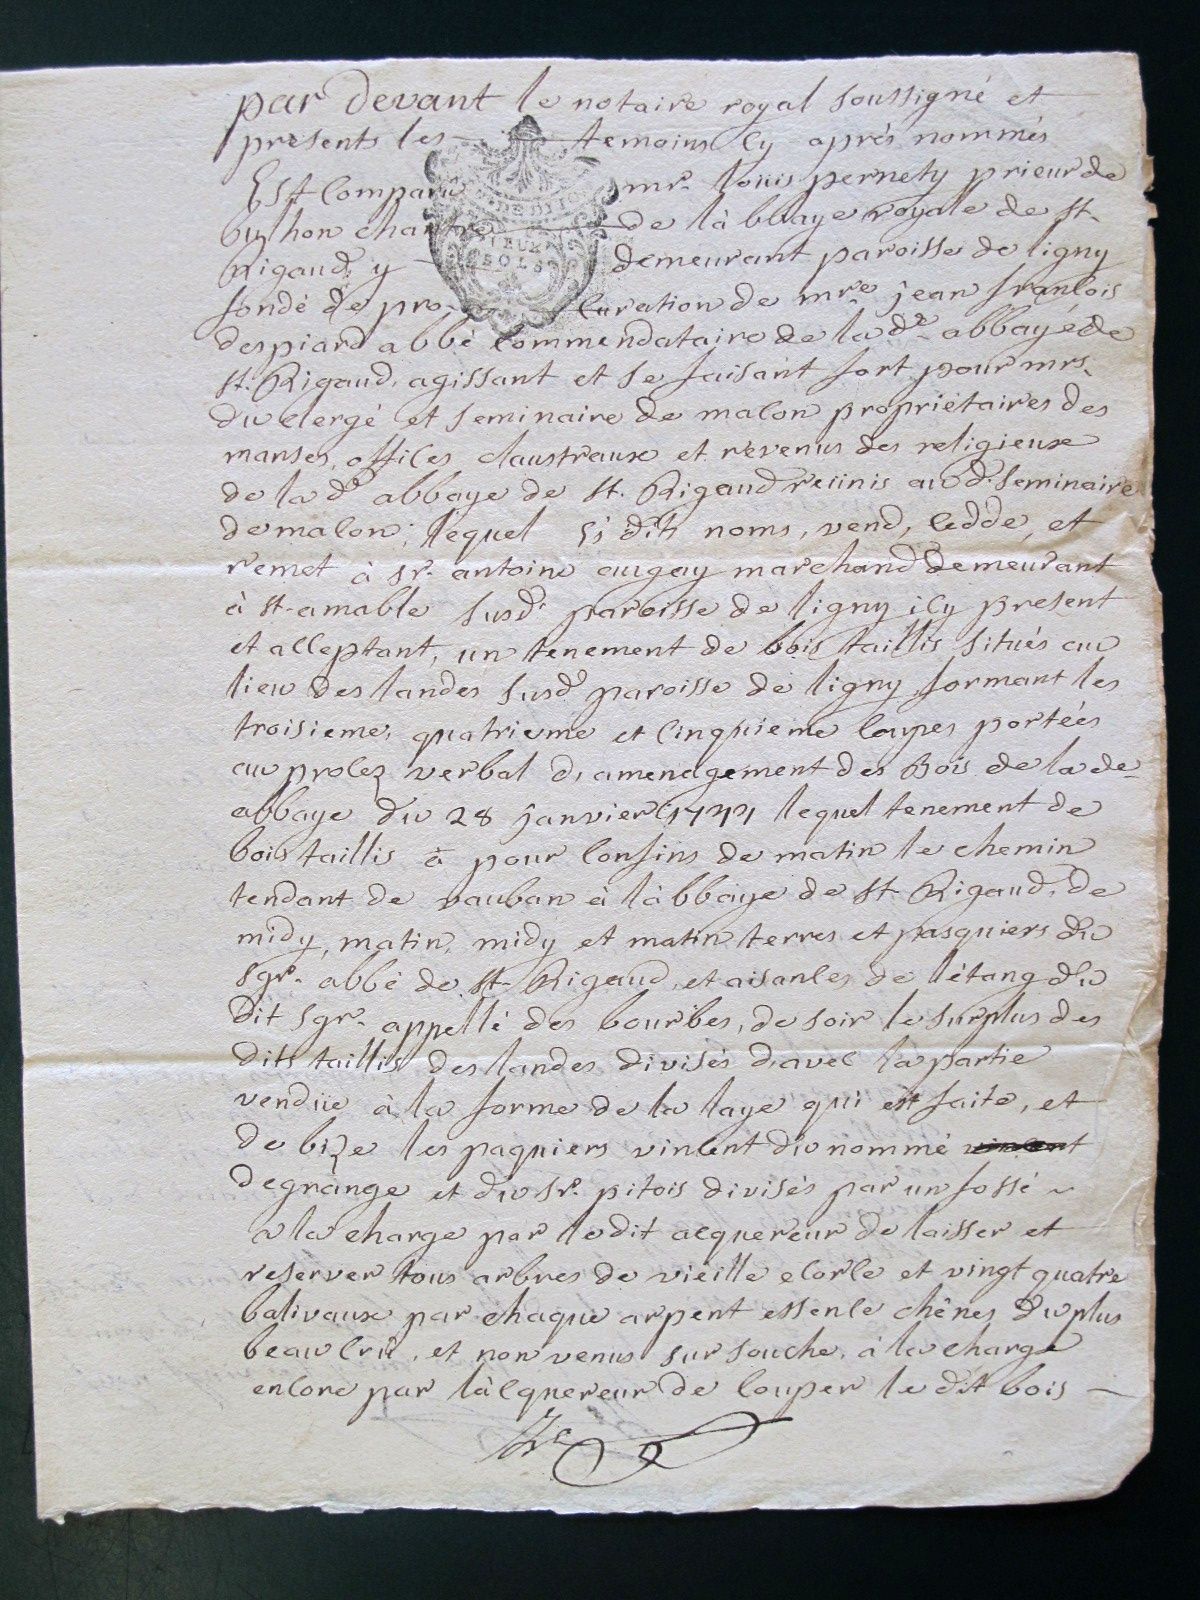 par devant le notaire royal soussigné et
presents les temoins cy aprés nommés
Est comparu mr. louis pernety prieur de
bushon chantre de làbbaye royale de st.
Rigaud, y demeurant paroisse de ligny
fondé de procuration de mre. jean francois
despiard abbé commendataire de lade. abbaye de
st. Rigaud, agissant et se faisant fort pour mrs.
du clergé et seminaire de macon propriétaires des
manses, offices claustraux et revenus des religieux
de lade. abbaye de st. Rigaud reünis aud. Seminaire
de macon; lequel és dits noms, vend, cedde, et
remet à sr. antoine augay marchand demeurant
à st. amable susd. paroisse de ligny icy present
et acceptant, un tenement de bois taillis situés au
lieu des landes susd. paroisse de ligny formant les
troisieme, quatrieme et cinquieme coupes portées
au procez verbal d'amenagement des Bois de lade.
abbaye du 28 janvier lequel tenement de
bois taillis à pour confins de matin le chemin
tendant de vauban à làbbaye de st. Rigaud, de
midy, matin, midy et matin terres et pasquiers du
sgr. abbé de st. Rigaud, et aisances de létang du
dit sgr. appellé des bourbes, de soir le surplus des
dits taillis des landes divisés d'avec la partie
vendüe à la forme de la laye qui est faite, et
de bize les paquiers vincent du nommé
degrange et du sr. pitois divisés par un fossé ~
a la charge par ledit acquereur de laisser et
reserver tous arbres de vieille ecorce et vingt quatre
balivaux par chaque arpent essence chênes du plus
beau crû, et non venus sur souche, à la charge
encore par làcquereur de couper le dit bois
SOLS